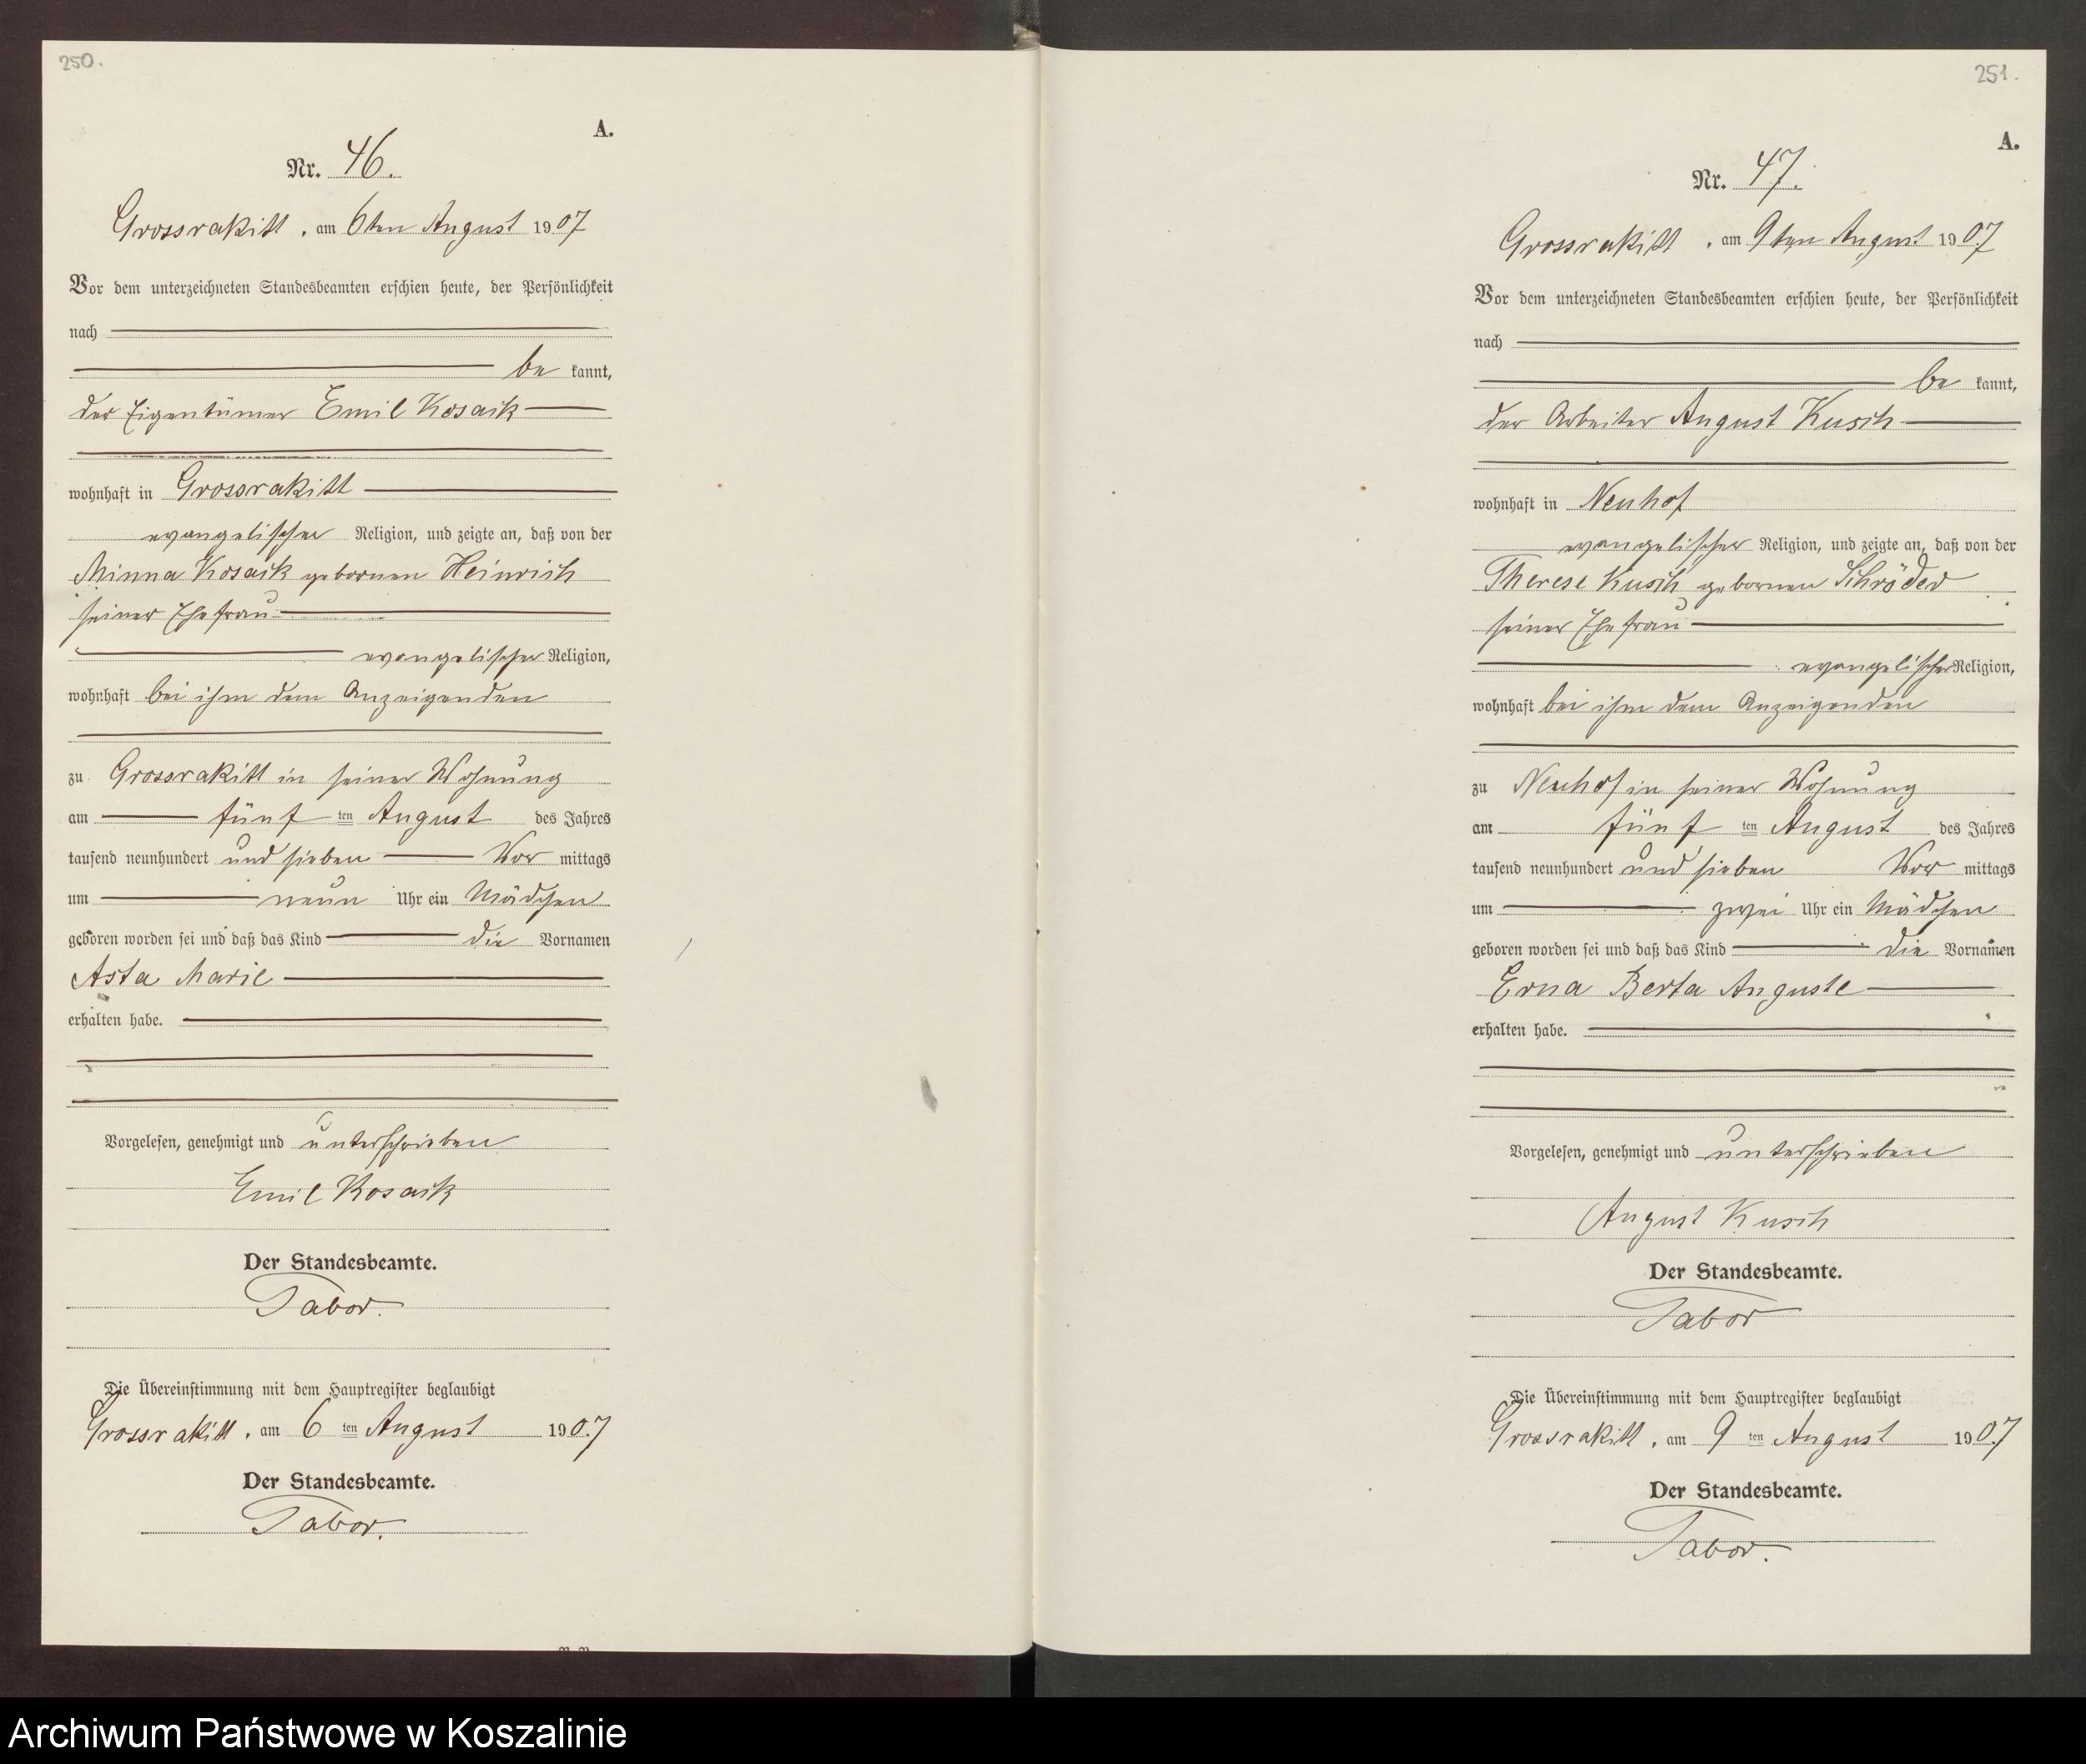 250.
A.
Nr. 46.
Grossrakitt, am 6ten August 1907
Vor dem unterzeichneten Standesbeamten erschien heute, der Persönlichkeit
nach
be kannt,
der Eigentümer Emil Kosaik
wohnhaft in Grossrakitt
evangelischer Religion, und zeigte an, daß von der
Minna Kosaik gebornen Heinrich
seiner Ehefrau
evangelischer Religion,
wohnhaft bei ihm dem Anzeigenden
zu Grossrakitt in seiner Wohnung
am fünf ten August des Jahres
tausend neunhundert und sieben Vor mittags
um neun Uhr ein Mädchen
geboren worden sei und daß das Kind die Vornamen
Asta Marie
erhalten habe.
Vorgelesen, genehmigt und unterschrieben
Emil Kosaik
Der Standesbeamte.
Tabor.
Die Übereinstimmung mit dem Hauptregister beglaubigt
Grossrakitt, am 6 ten August 1907
Der Standesbeamte.
Tabor.
251.
A.
Nr. 47.
Grossrakitt, am 9ten August 1907
Vor dem unterzeichneten Standesbeamten erschien heute, der Persönlichkeit
nach
be kannt,
der Arbeiter August Kusch
wohnhaft in Neuhof
evangelischer Religion, und zeigte an, daß von der
Therese Kusch gebornen Schröder
seiner Ehefrau
evangelischer Religion,
wohnhaft bei ihm dem Anzeigenden
zu Neuhof in seiner Wohnung
am fünf ten August des Jahres
tausend neunhundert und sieben Vor mittags
um zwei Uhr ein Mädchen
geboren worden sei und daß das Kind die Vornamen
Erna Berta Auguste
erhalten habe.
Vorgelesen, genehmigt und unterschrieben
August Kusch
Der Standesbeamte.
Tabor
Die Übereinstimmung mit dem Hauptregister beglaubigt
Grossrakitt, am 9 ten August 1907
Der Standesbeamte.
Tabor.
Archiwum Państwowe w Koszalinie